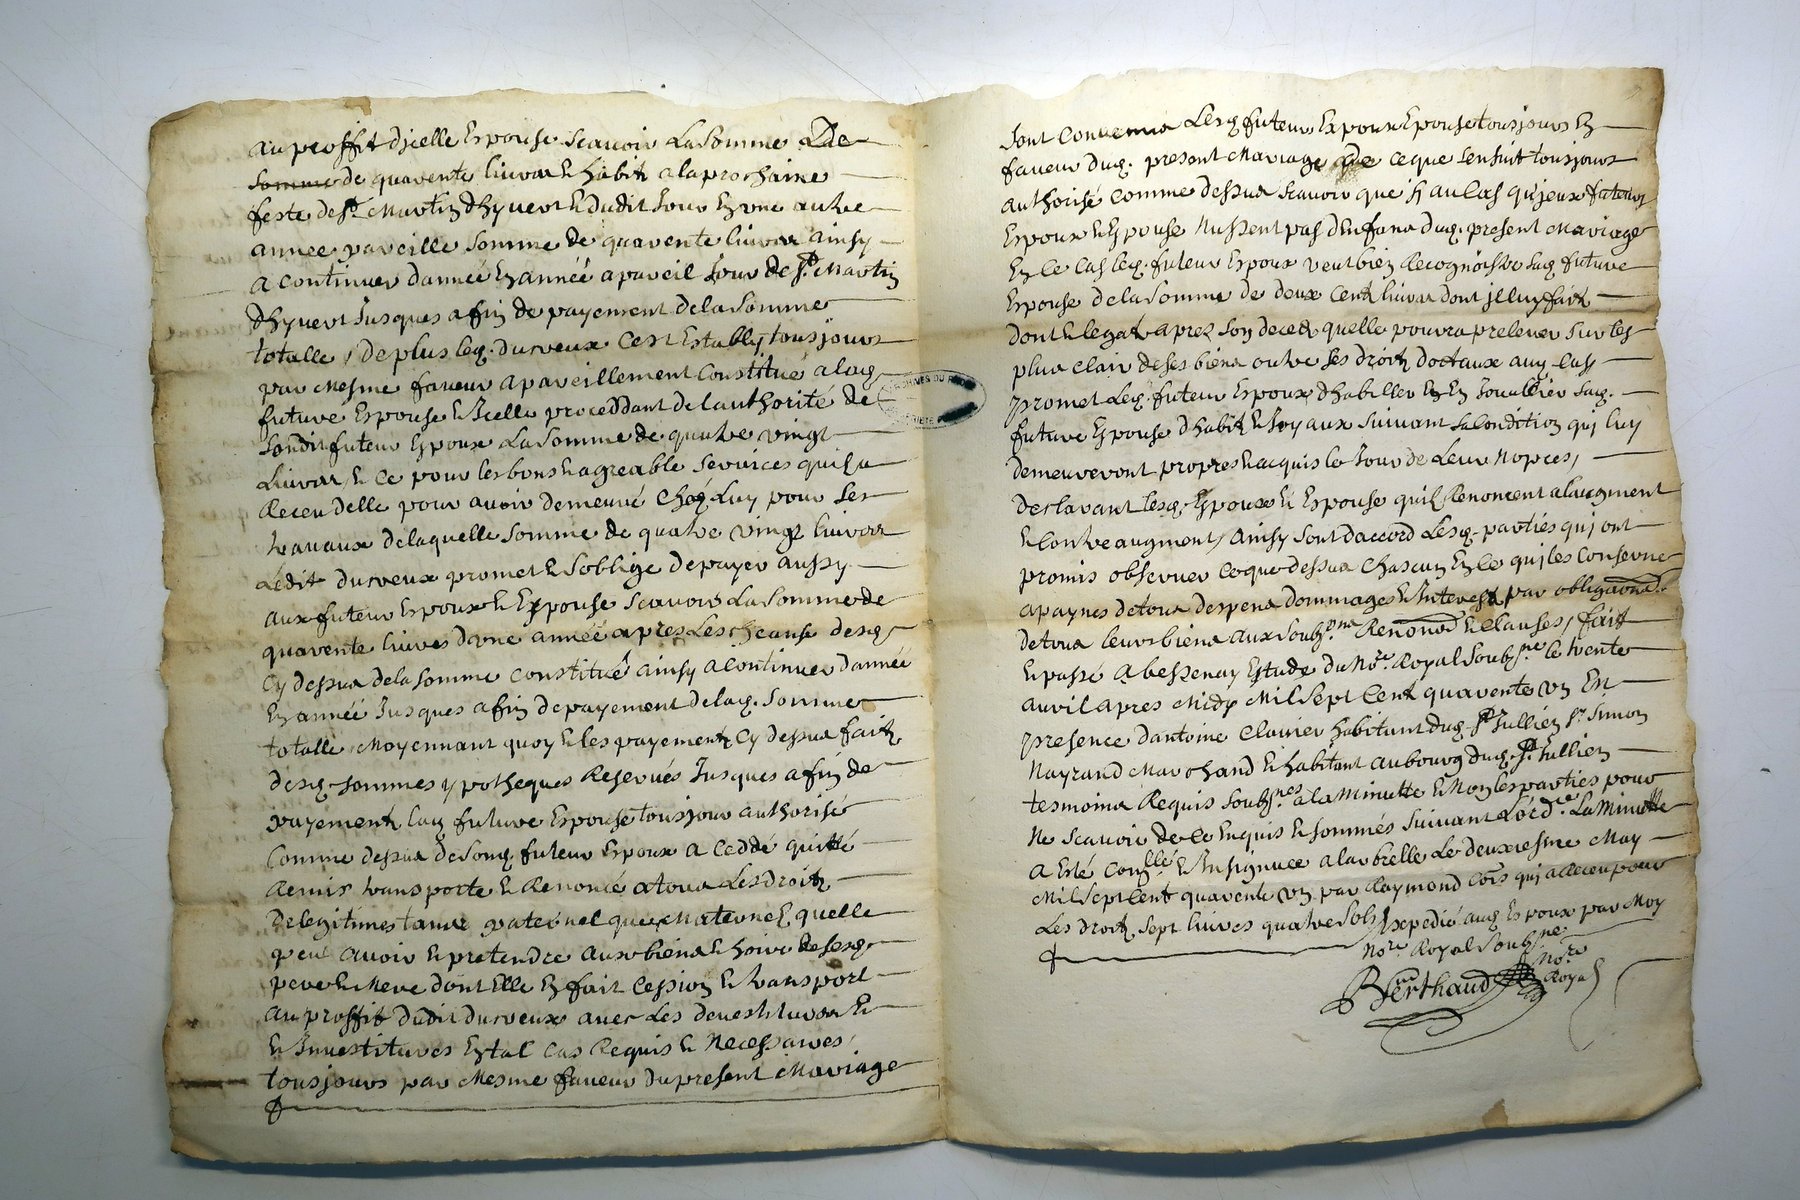 au proffit djcelle Espouse scavoir La somme De
somme de quarente livres & habits a la prochaine
feste de st. Martin dhyvert & dudit Jour En une autre
annee pareille somme de quarente livres ainsy
a continuer dannée En année a pareil Jour de st. Martin
dhyvert Jusques a fin de payement de la somme
totalle / de plus leq. durveux cest Estably tousjours
par mesme faveur a pareillement constitué a lad.
future Espouse & Jcelle proceddant de l'authorité de
sondit futeur Espoux La somme de quatre vingt
Livres, & ce pour les bons & agreable services quil a
Receu delle pour avoir demeuré chéz Luy pour ses
travaux de laquelle somme de quatre vingt livres
Ledit durveux promet & soblige de payer aussy
aux futeur Espoux & Espouse scavoir La somme de
quarente livres dune année apres Lescheanse desd.
Cy dessus de la somme constitué ainsy a continuer dannée
En année Jusques a fin de payement de lad. somme
totalle moyennant quoy & les payements Cy dessus faits
desd. sommes ypotheques Reservés Jusques a fin de
payements lad. future Espouse tousjour authorisé
comme dessus de sond. futeur Espoux a Ceddé quitté
Remis transporté & Renoncé a tous Les droits
De legitimes tant paternel que Maternel quelle
peut avoir & pretendre aux biens & hoirs de sesd.
pere & Mere dont Elle En fait Cession & transport
au proffit dudit durveux avec Les devestitures &
& Jnvestitures En tal cas Requis & Necessaires,
tousjours par Mesme faveur du present Mariage
sont Convenus Lesd. futeur Espoux Epouse tousjours En
faveur dud. present Mariage de ce que sensuit tousjours
authorisé comme dessus scavoir que sy au Cas qujeux futeurs
Espoux & Espouse Nussent pas denfans dud. present Mariage
En ce Cas leq. futeur Espoux veut bien Recognoistre sad. future
Espouse de la somme de deux Cent livres dont jl luy fait
dont & legat aprez son decedz quelle pourra prelever sur les
plus clair de ses biens outre ses droits dottaux auq. Cas
promet Leq. futeur Espoux dhabiller & En Jouallier sad.
future Espouse dhabits & Joyaux suivant sa condition qui luy
demeureront propres & acquis le Jour de Leur Nopces,
declarant lesd. Espoux & Espouse quils Renoncent a laugment
& contre augment, ainsy sont daccord Lesd. parties qui ont
promis observer ce que dessus chascun En ce qui les Conserne
a paynes de tous despens dommages & Interests par obligaons.
de tous leurs biens aux soubzmns. Renonons & Clauses, fait
& passé a bessenay Estude du Nore. Royal soubzne. le trente
avril apres Midy Mil Sept Cent quarente un En
presence dantoine Clavier habitant dud. st. Jullien sr. Simon
Nayrand Marchand & habitant au bourg dud. st. Jullien
tesmoins Requis soubznes a la Minutte & Non les parties pour
Ne scavoir de Ce Enquis & sommés suivant Lordce. La Minutte
a Esté conllé & Insignuee a larbrelle Le deuxiesme May
Mil Sept Cent quarente un par Raymond Cois qui a Receu pour
Les droits sept livres quatre sols, Expedié aud. Espoux par Moy
Nore Royal soubzne
Berthaud
Nore
Royal